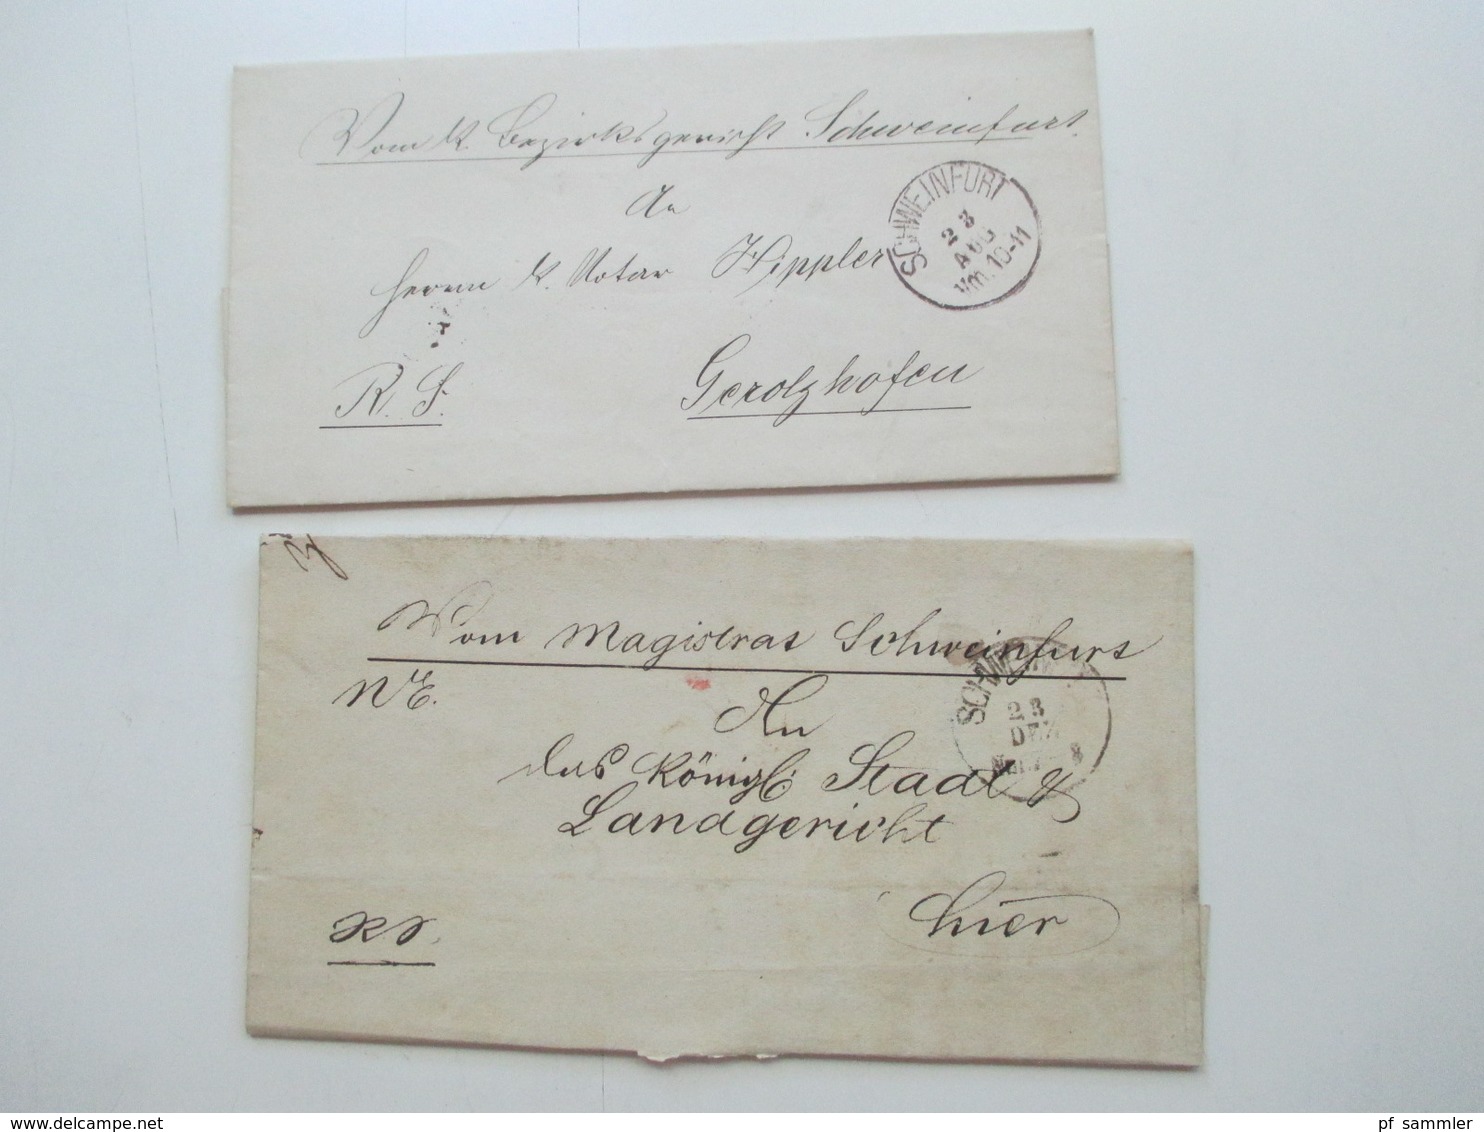 Vom k. Bezirksgericht Schweinfurt.
An
Herrn k. Notar Hippler
R. S.
Gerolzhofen
SCHWEINFURT
23
AUG
Vm. 10-11
Vom Magistrat Schweinfurt
NE.
An
das Königl. Stadt &
Landgericht
hier
RS.
SCHWEINFURT
23
DEZ
delcampe.net
pf_sammler